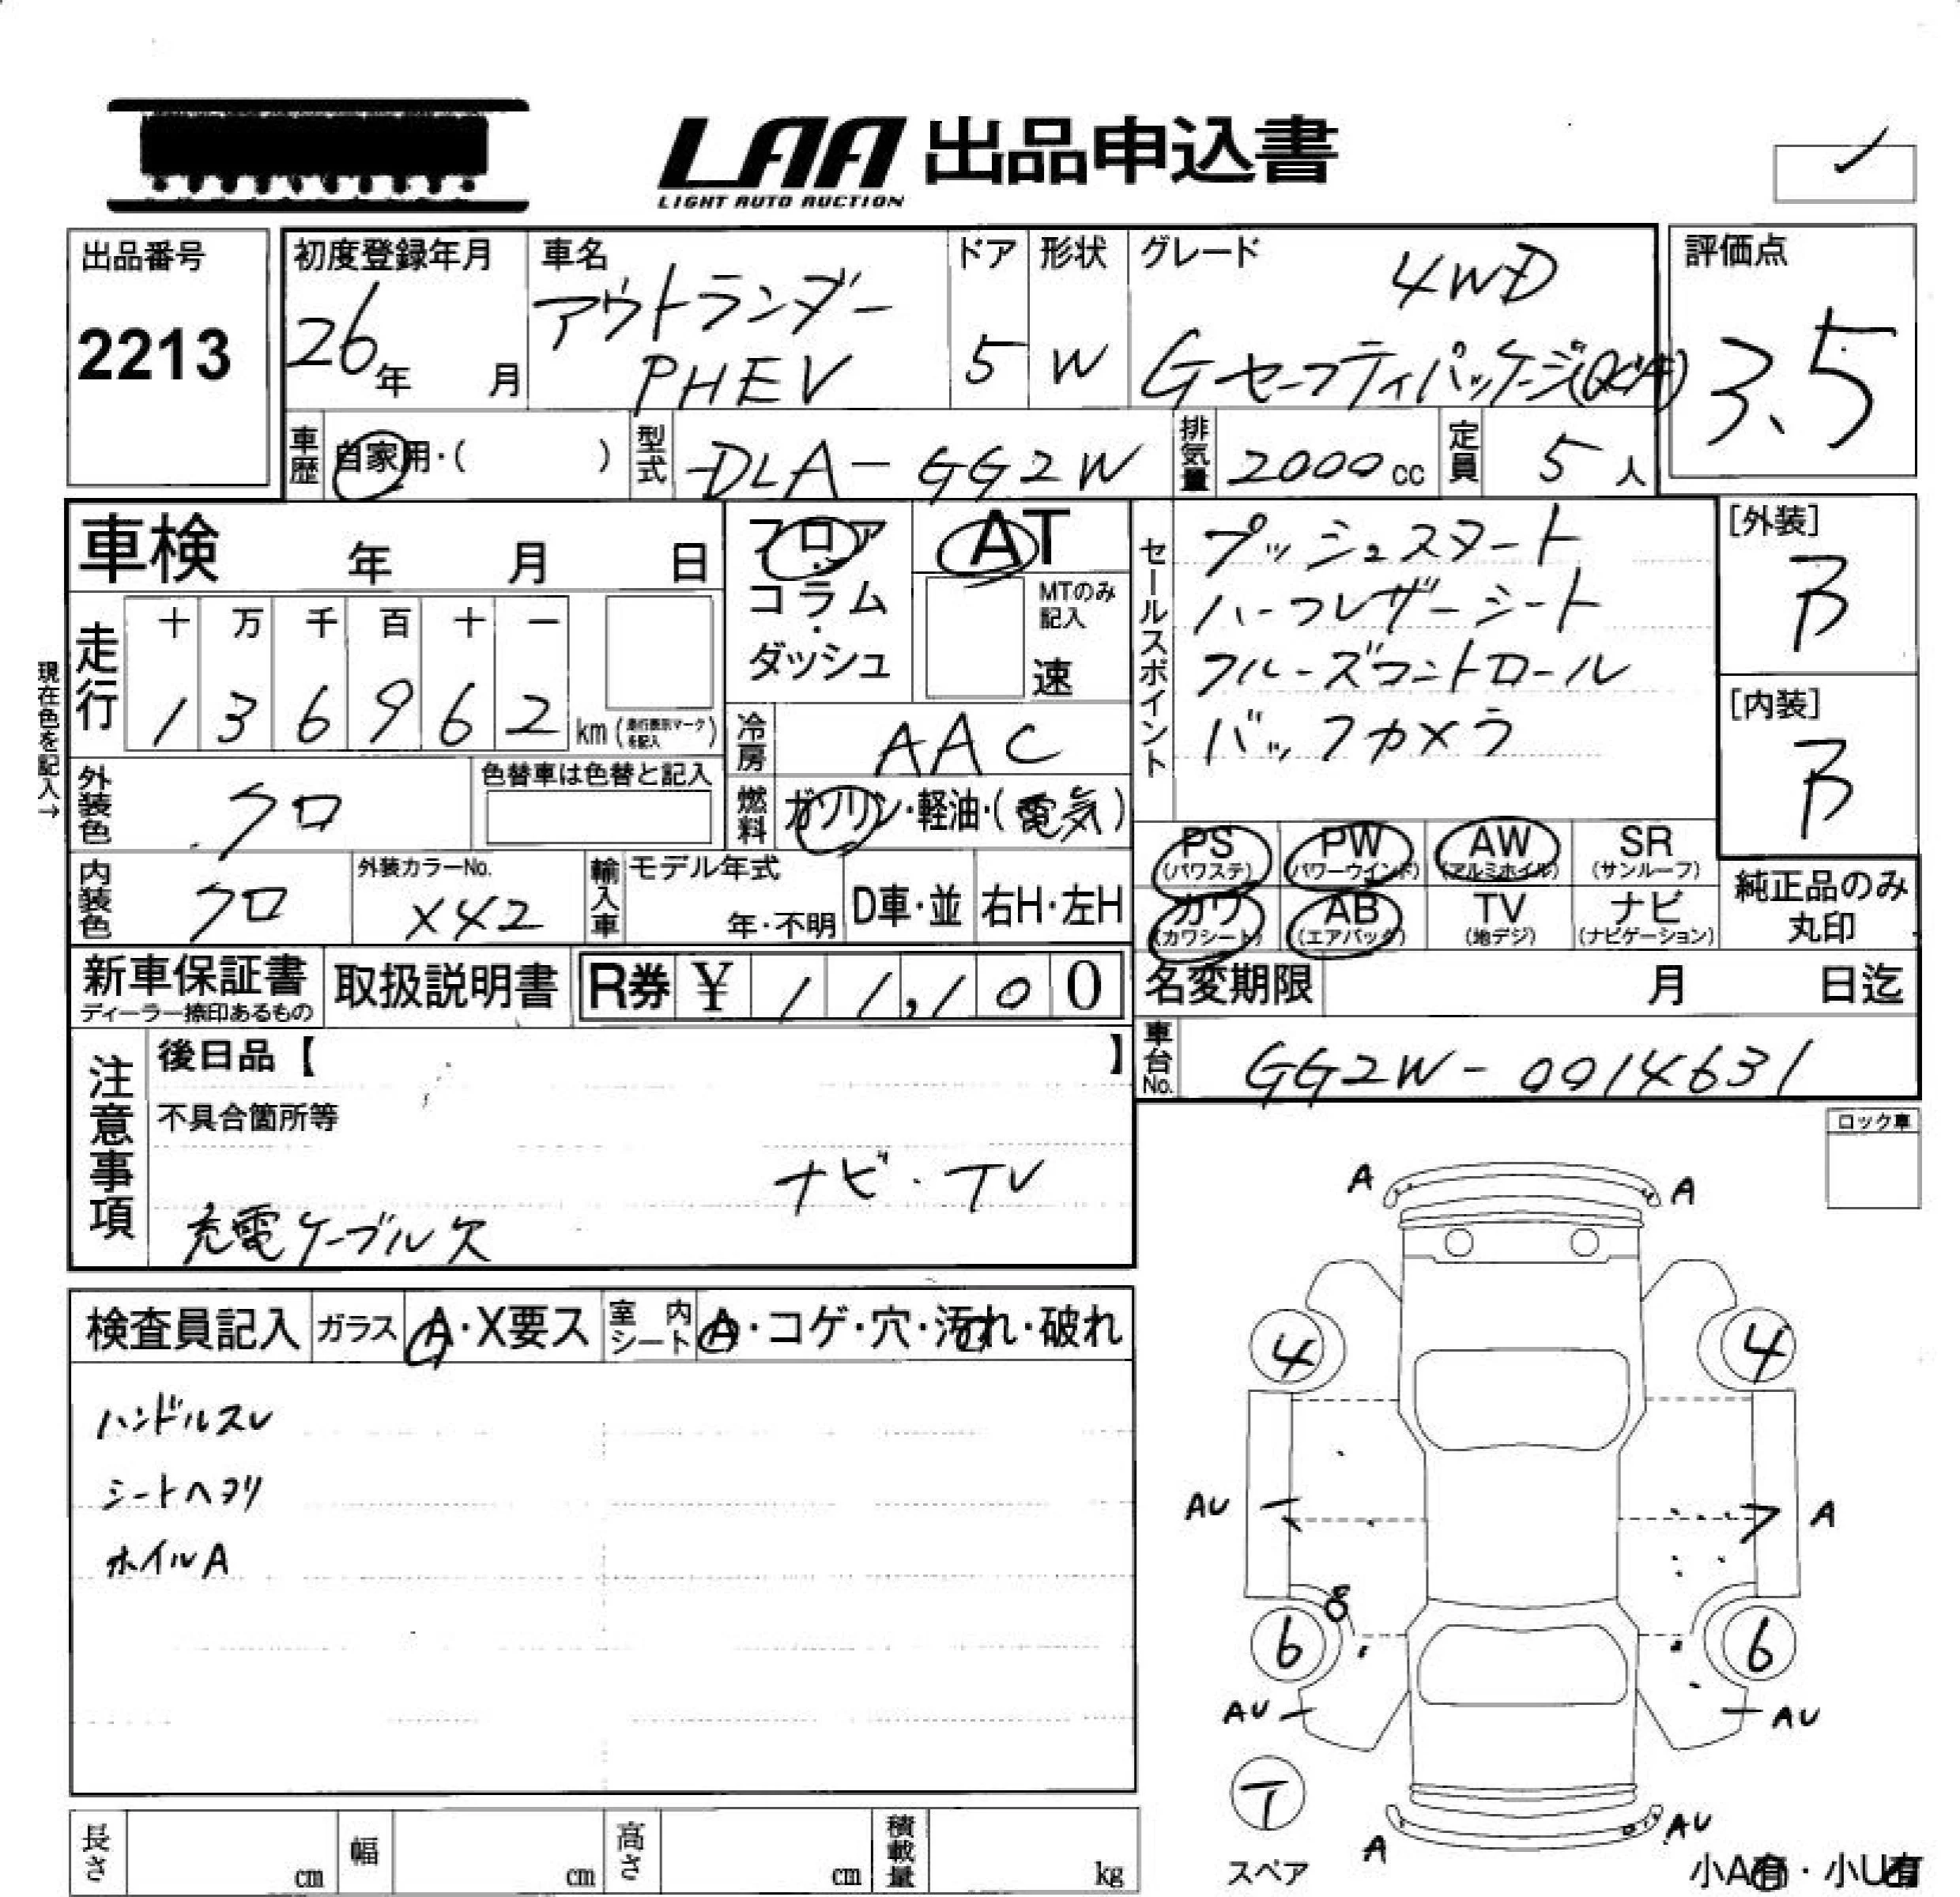 LAA 出品申込書
LIGHT AUTO AUCTION
出品番号
2213
初度登録年月
26年 月
車名
アウトランダー
PHEV
ドア
5
形状
W
グレード
4WD
Gセーフティパッケージ
評価点
3.5
車歴
自家用・( )
型式
DLA-GG2W
排気量
2000cc
定員
5人
車検 年 月 日
フロア・コラム・ダッシュ
AT
MTのみ記入
速
セールスポイント
プッシュスタート
ハーフレザーシート
クルーズコントロール
バックカメラ
[外装]
B
[内装]
B
現在色を記入→
走行
十 万 千 百 十 一
1 3 6 9 6 2 km (走行表示マークを記入)
冷房
AAC
外装色
クロ
色替車は色替と記入
燃料
ガソリン・軽油・(電気)
PS (パワステ)
PW (パワーウインド)
AW (アルミホイル)
SR (サンルーフ)
カワ (カワシート)
AB (エアバック)
TV (地デジ)
ナビ (ナビゲーション)
純正品のみ丸印
内装色
クロ
外装カラーNo.
X42
輸入車
モデル年式
年・不明
D車・並
右H・左H
新車保証書
ディーラー捺印あるもの
取扱説明書
R券 ¥ 11,100
名変期限 月 日迄
車台No.
GG2W-0014631
注意事項
後日品【 】
不具合箇所等
ナビ・TV
充電ケーブル欠
ロック車
検査員記入
ガラス
A・X要ス
室内シート
A・コゲ・穴・汚れ・破れ
ハンドルスレ
シートヘタリ
ホイルA
A A
4 4
AU A
8
6 6
AU AU
T
スペア
A AU
小A有・小U有
長さ cm
幅 cm
高さ cm
積載量 kg